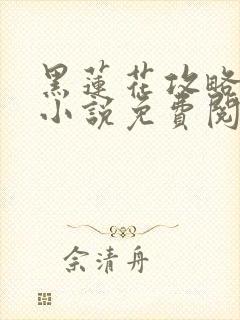 黑蓮花攻略
小說免費閱
佘清舟